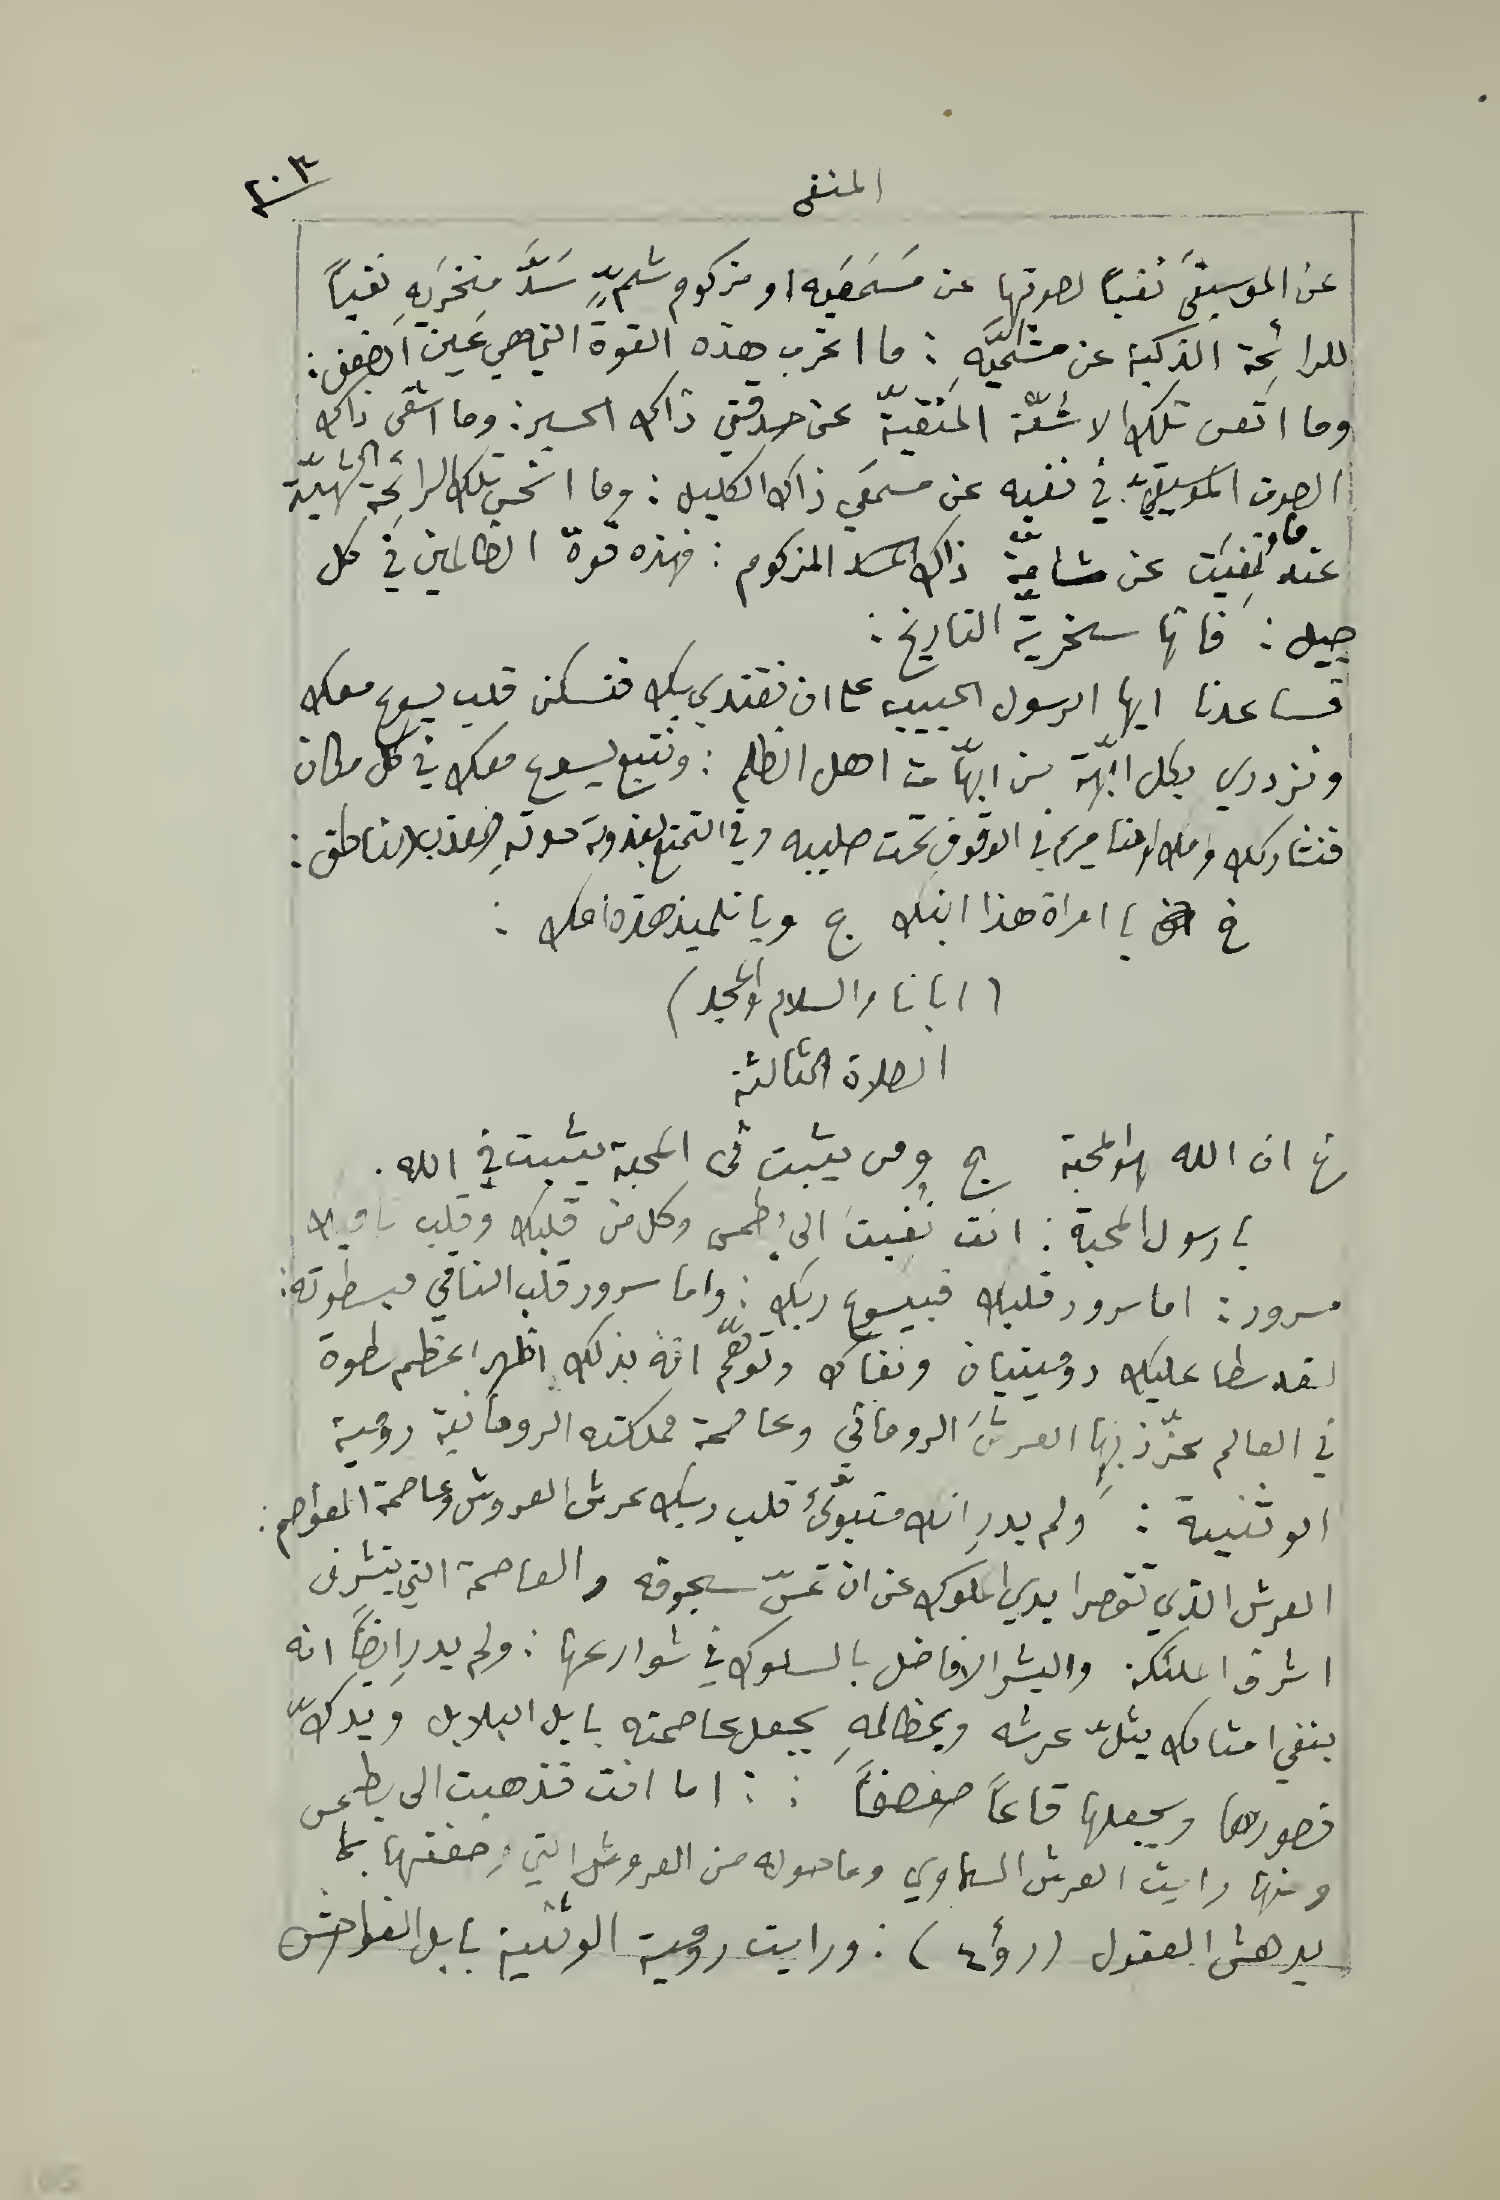 المنفى
٢٠٣
عن الموسيقَى نفياً لصوتها عن مَسمَعَيه او مزكوم شمٍّ سَدَّ منخرَيهِ نفياً
للرائحة الذكية عن مشمّيَه : ما اغرب هذه القوة التي هي عين الضعف :
وما اتعس تلك الاشعّة المنفيّة عن حدقتي ذاك الحسير : وما اشقى ذاك
الصوت الموسيقيّ في نفيه عن مسمعَي ذاك الكليل : وما اتعس تلك الرائحة الشهيّة
عندما نُفِيَت عن شامّة ذاك المزكوم : فهذه قوة الظالمين في كل
جيل : فانها سخريّة التاريخ :
فساعدنا ايها الرسول الحبيب على ان نقتدي بك فنسكن قلب يسوع معك
ونزدري بكل ابّهة من ابّهات اهل الظلم : ونتبع يسوع معك في كل مكان
فنشاركك وامك وامنا مريم في الوقوف تحت صليبه وفي التمتع بعذوبة صوتهِ العذب الناطق :
خ يا امراة هذا ابنك ج ويا تلميذ هذه امك :
( ابانا والسلام والمجد )
الصلاة الثالثة
خ ان الله هو المحبة ج ومن يثبت في المحبة يثبت في الله .
يا رسول المحبة : انت نُفيتَ الى بطمس وكل من قلبك وقلب
مسرور : اما سرور قلبك فبيسوع ربك : واما سرور قلب النافي فبسطوته :
لقد سطا عليك دومينيان ونفاك وتوهّم انهُ بذلك اظهر اعظم سطوة
في العالم عزّز بها العرش الروماني وعاصمة مملكته الرومانية رومية
الوثنية : ولم يدرِ انك متبوّئ قلب ربك عرش العروش وعاصمة العواصم :
العرش الذي تقصر ايدي الملوك عن ان تمسّ سجوفه والعاصمة التي يتشرف
اشرف الملئكة والبشر الافاضل بالسلوك في شوارعها : ولم يدرِ ايضاً انه
بنفي امثالك يثلّ عرشه وبمظالمهِ يجعل عاصمته بابل البلابل ويدكّ
قصورها ويجعلها قاعاً صفصفاً : : اما انت فذهبت الى بطمس
ومنها رايت العرش السماوي وما حوله من العروش التي وصفتها بما
يدهش العقول ( رؤ ٤ ) : ورايت رومية الوثنية بابل الفواحش